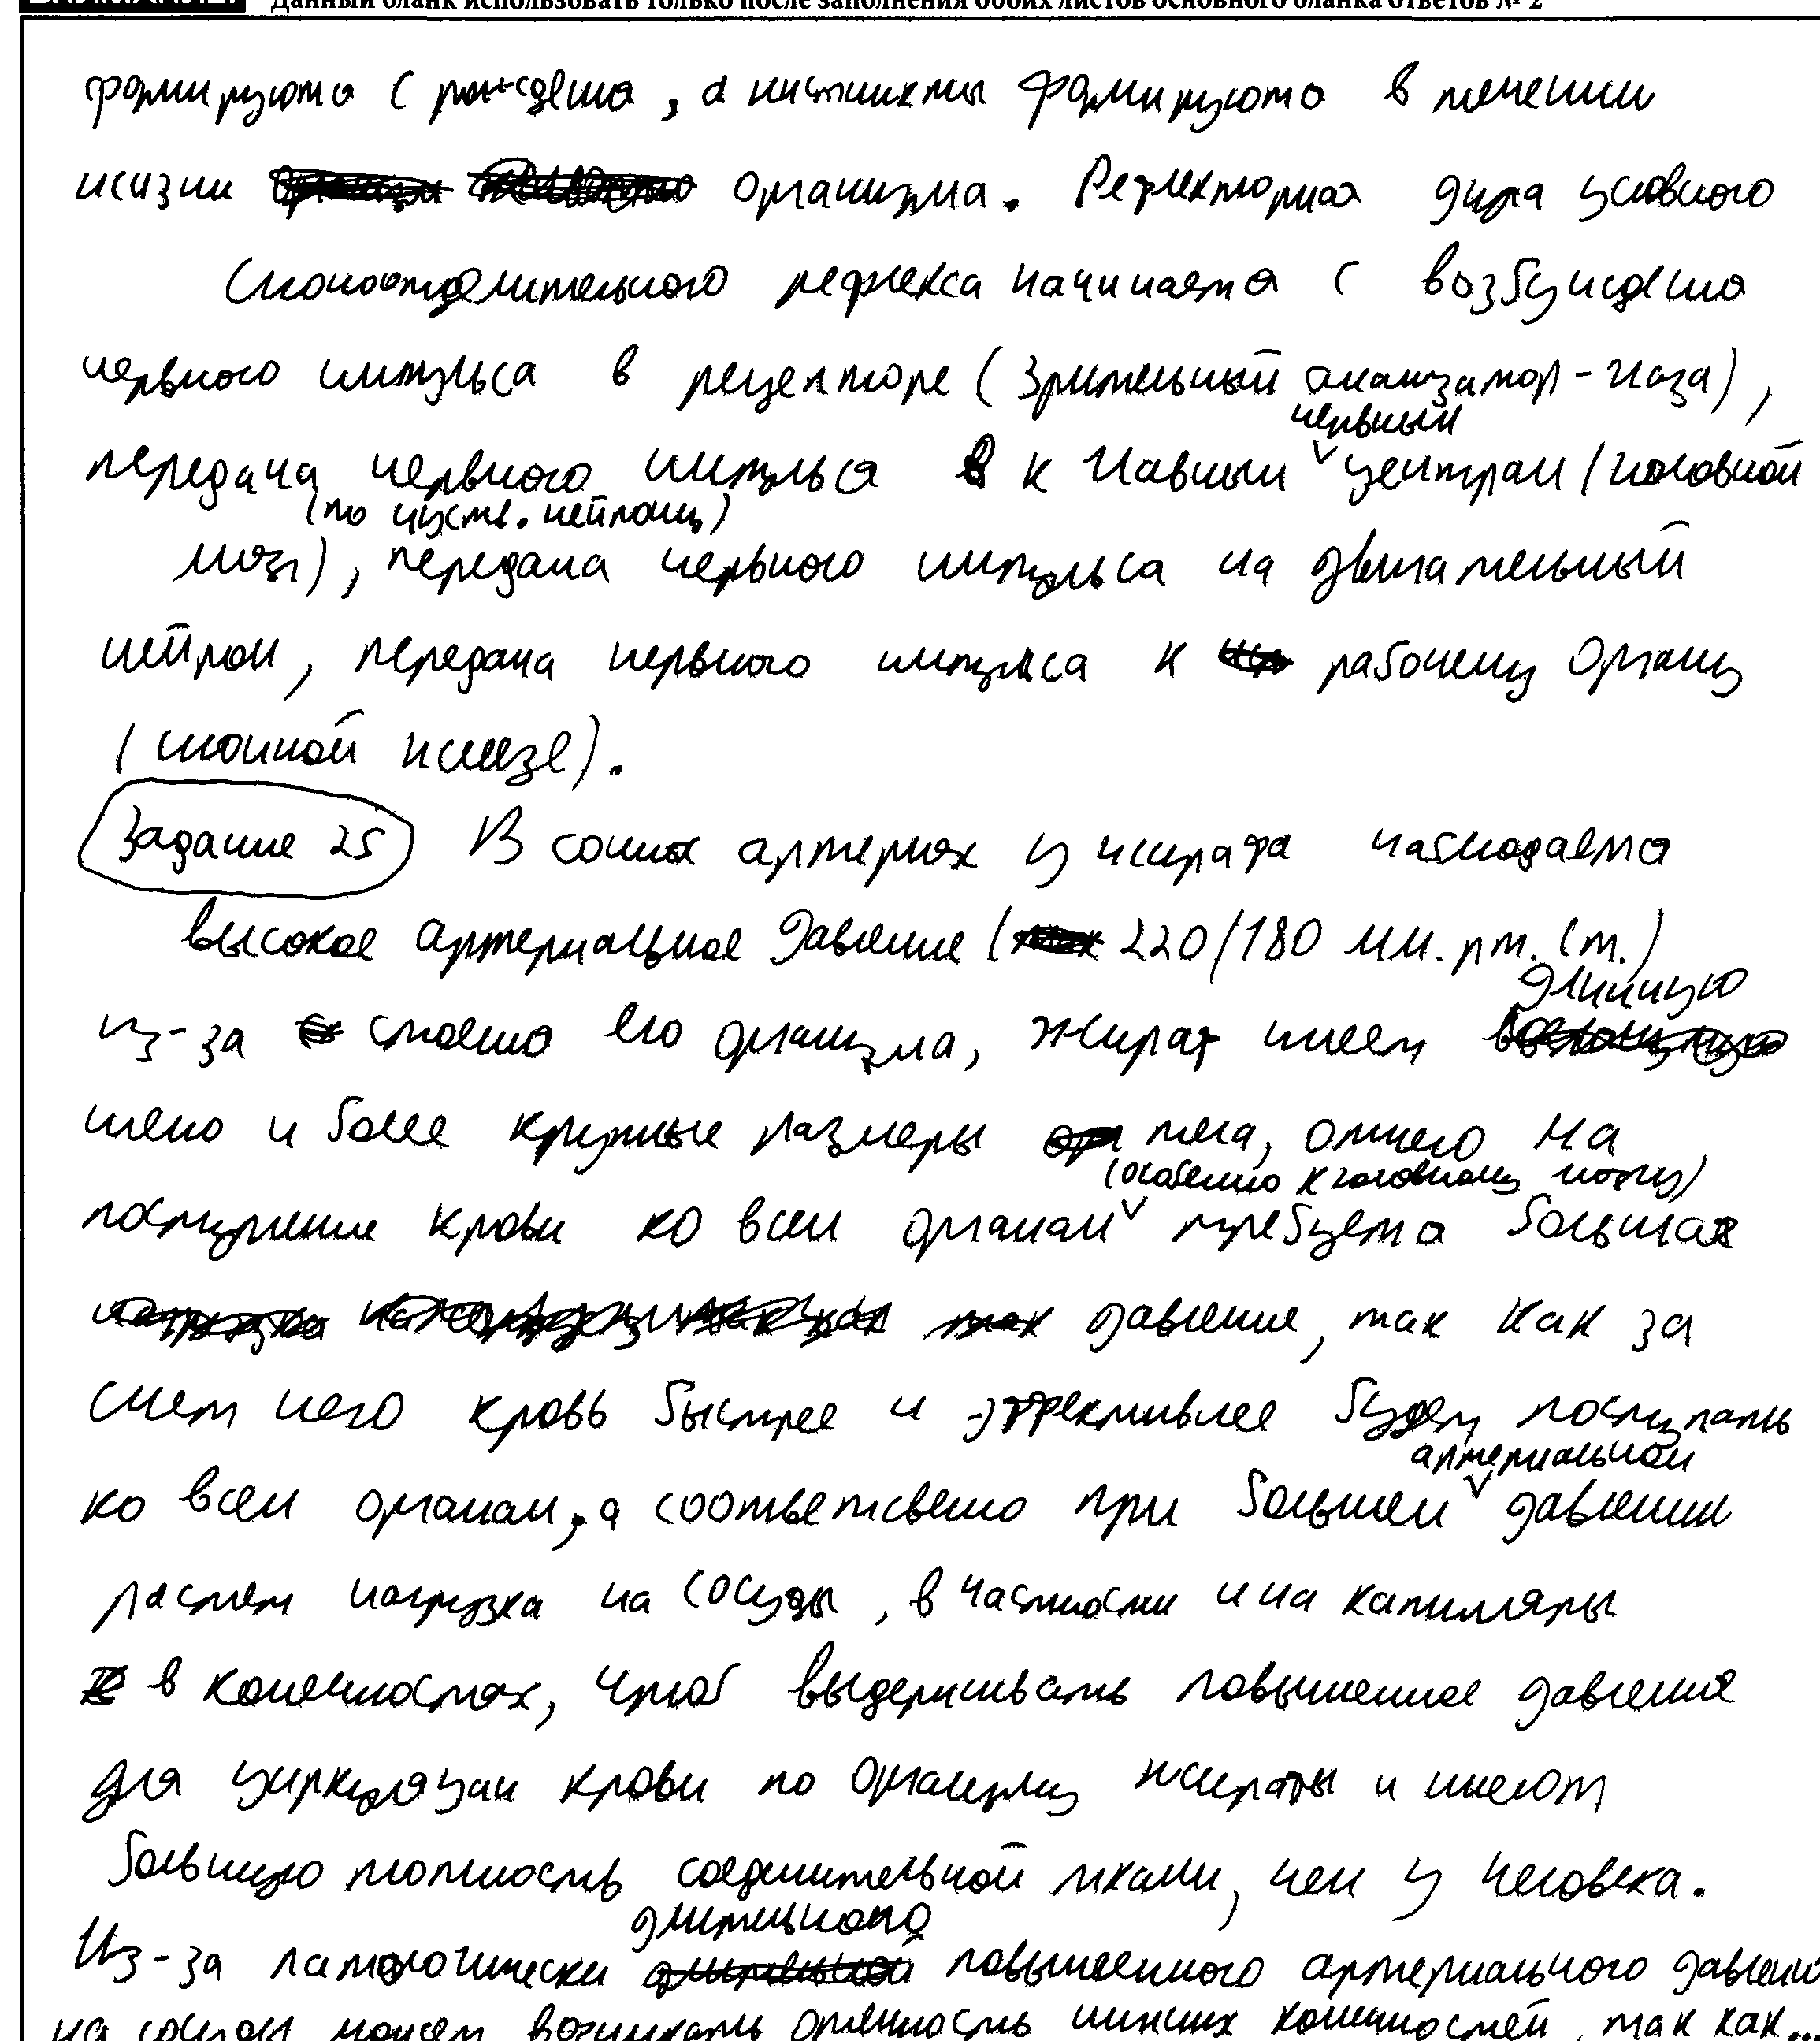 ВНИМАНИЕ! Данный бланк использовать только после заполнения обоих листов основного бланка ответов № 2
формируются с рождения, а инстинкты формируются в течении
жизни организма. Рефлекторная дуга условного
слюноотделительного рефлекса начинается с возбуждения
нервного импульса в рецепторе (зрительный анализатор - глаза),
нервным
передача нервного импульса к главным ˅ центрам (головной
(по чувств. нейрону)
мозг), передача нервного импульса на двигательный
нейрон, передача нервного импульса к рабочему органу
(слюнной железе).
Задание 25 В сонных артериях у жирафа наблюдается
высокое артериальное давление (220/180 мм. рт. ст.)
длинную
из-за строения его организма, жираф имеет
шею и более крупные размеры тела, отчего на
(особенно к головному мозгу)
поступление крови ко всем органам ˅ требуется большая
давление, так как за
счет чего кровь быстрее и эффективнее будет поступать
артериальном
ко всем органам, а соответсвено при большем ˅ давлении
растет нагрузка на сосуды, в частности и на капилляры
в конечностях, чтоб выдерживать повышенное давление
для циркуляции крови по организму жирафы и имеют
большую плотность соединительной ткани, чем у человека.
длительного
Из-за патологически повышенного артериального давления
на сосудах может возникать отечность нижних конечностей, так как...